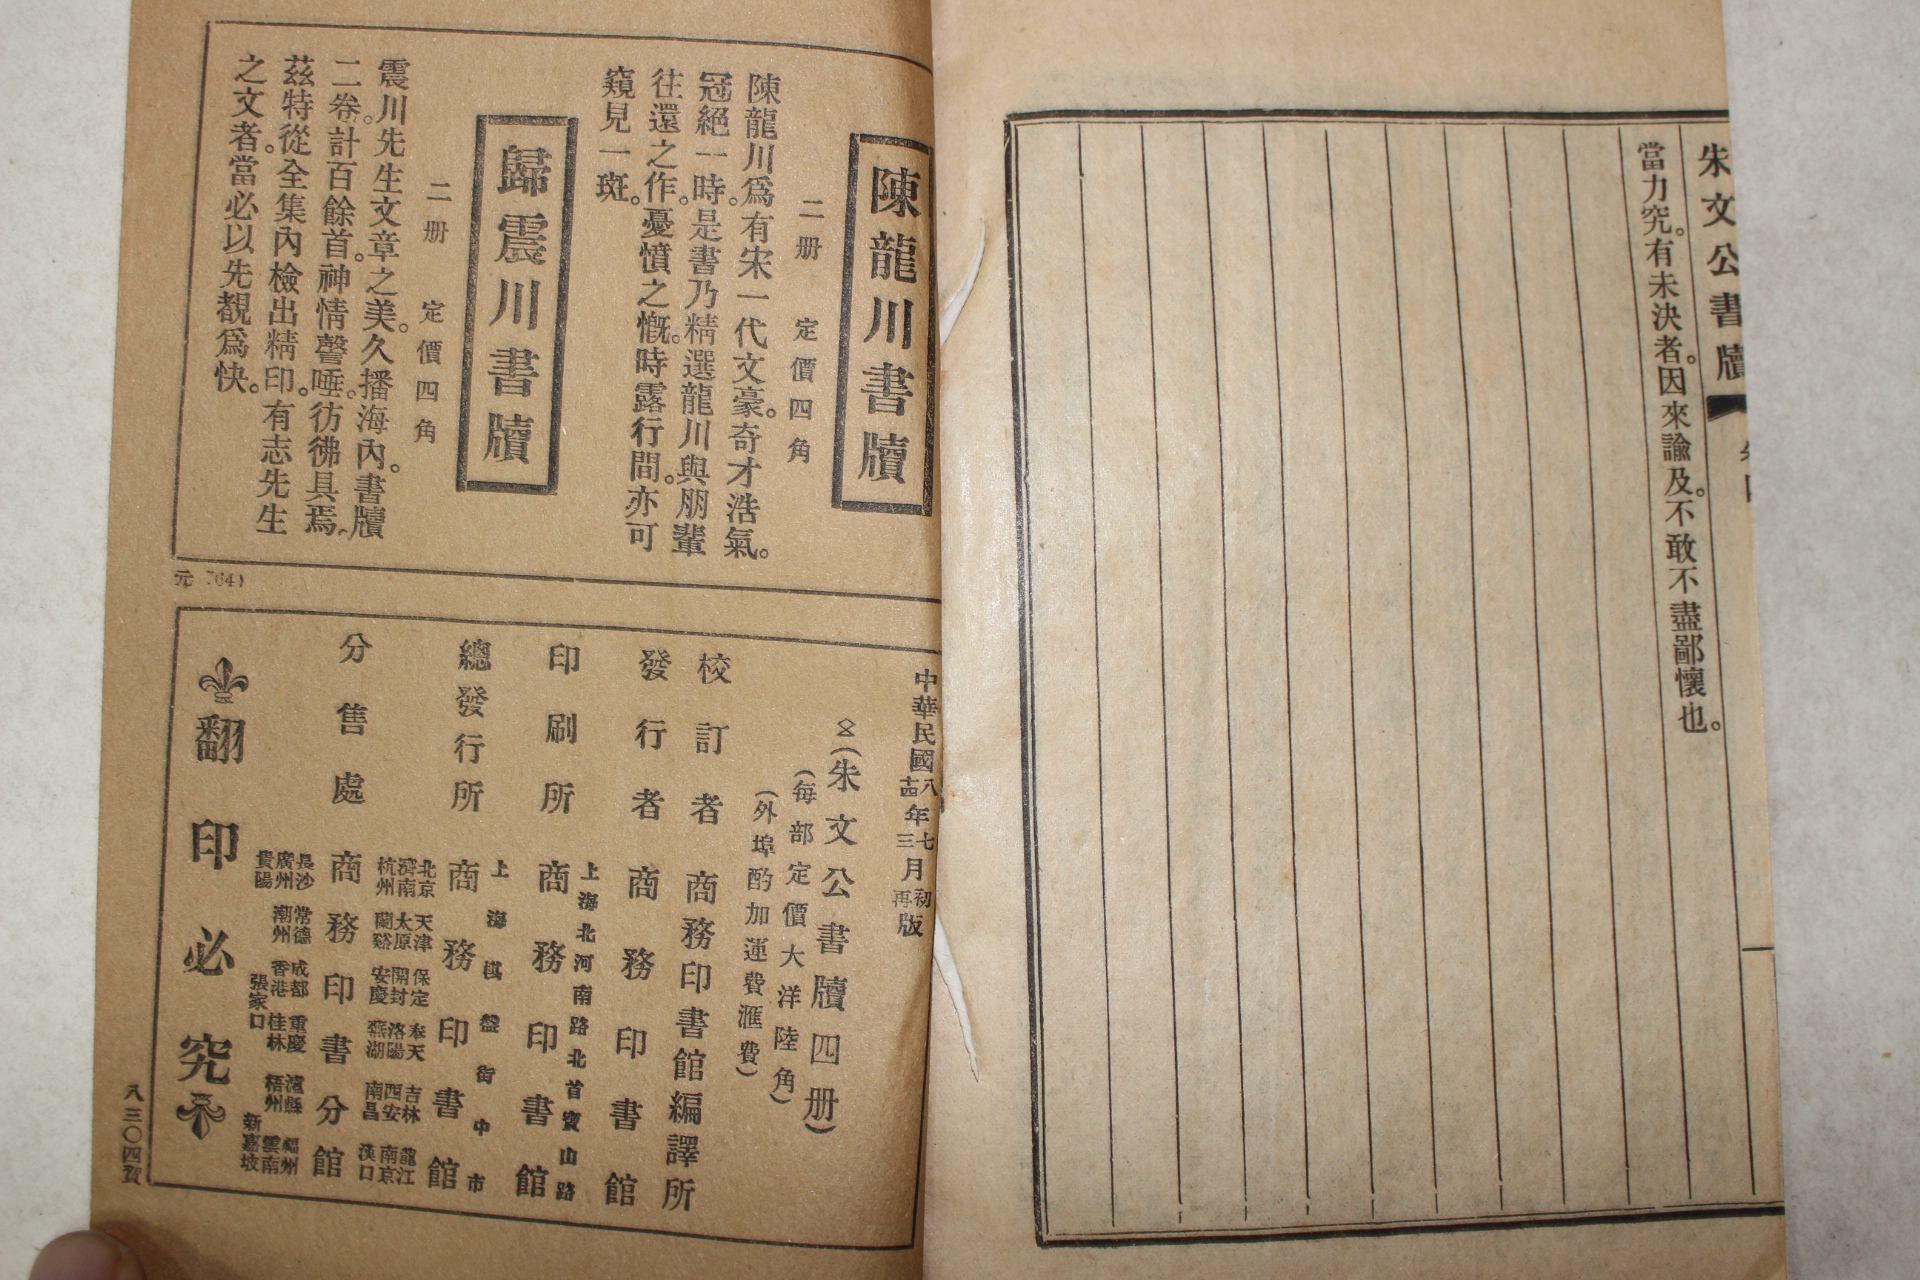 朱文公書牘
當力究。有未決者。因來諭及。不敢不盡鄙懷也。
陳龍川書牘
二册　定價四角
陳龍川爲有宋一代文豪。奇才浩氣。
冠絕一時。是書乃精選龍川與朋輩
往還之作。憂憤之慨。時露行間。亦可
窺見一斑。
歸震川書牘
二册　定價四角
震川先生文章之美。久播海內。書牘
二卷。計百餘首。神情謦唾。彷彿具焉、
茲特從全集內檢出精印。有志先生
之文者。當必以先覩爲快。
中華民國八年七月初版
十四年三月再版
(朱文公書牘四册)
(每部定價大洋陸角)
(外埠酌加運費滙費)
校訂者　商務印書館編譯所
發行者　商務印書館
上海北河南路北首寶山路
印刷所　商務印書館
上海棋盤街中市
總發行所　商務印書館
北京　天津　保定　奉天　吉林　龍江
濟南　太原　開封　洛陽　西安　南京
杭州　蘭谿　安慶　蕪湖　南昌　漢口
分售處　商務印書分館
長沙　常德　成都　重慶　瀘縣　福州
廣州　潮州　香港　桂林　梧州　雲南
貴陽　張家口　新嘉坡
翻印必究
八三〇四賀